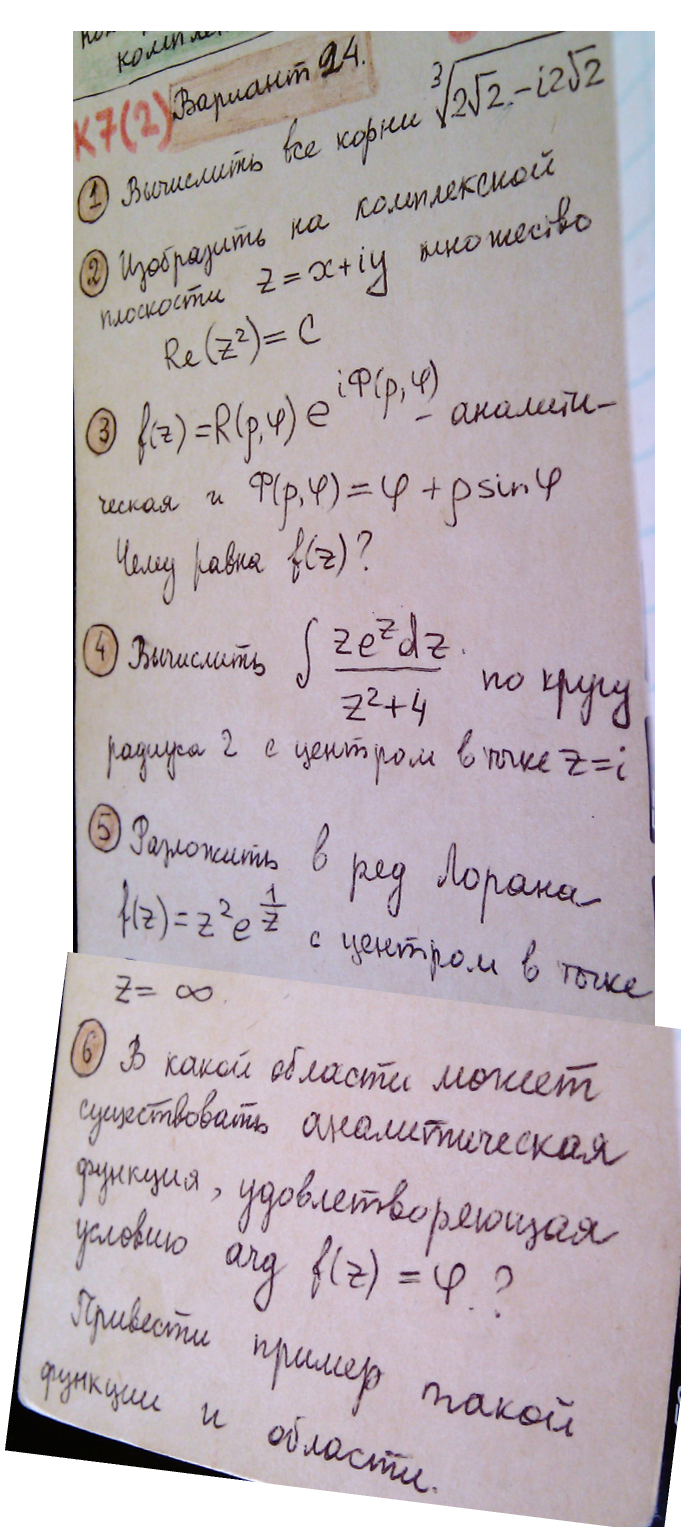 комплек
К7(2) Вариант 24.
① Вычислить все корни ∛(2√2 - i2√2)
② Изобразить на комплексной
плоскости z = x+iy множество
Re(z²) = C
③ f(z) = R(ρ,φ) e^{iФ(ρ,φ)} - аналити-
ческая и Ф(ρ,φ) = φ + ρ sin φ
Чему равна f(z)?
④ Вычислить ∫ ze^z dz / (z²+4) по кругу
радиуса 2 с центром в точке z=i
⑤ Разложить в ряд Лорана
f(z) = z² e^{1/z} с центром в точке
z = ∞
⑥ В какой области может
существовать аналитическая
функция, удовлетворяющая
условию arg f(z) = φ ?
Привести пример такой
функции и области.